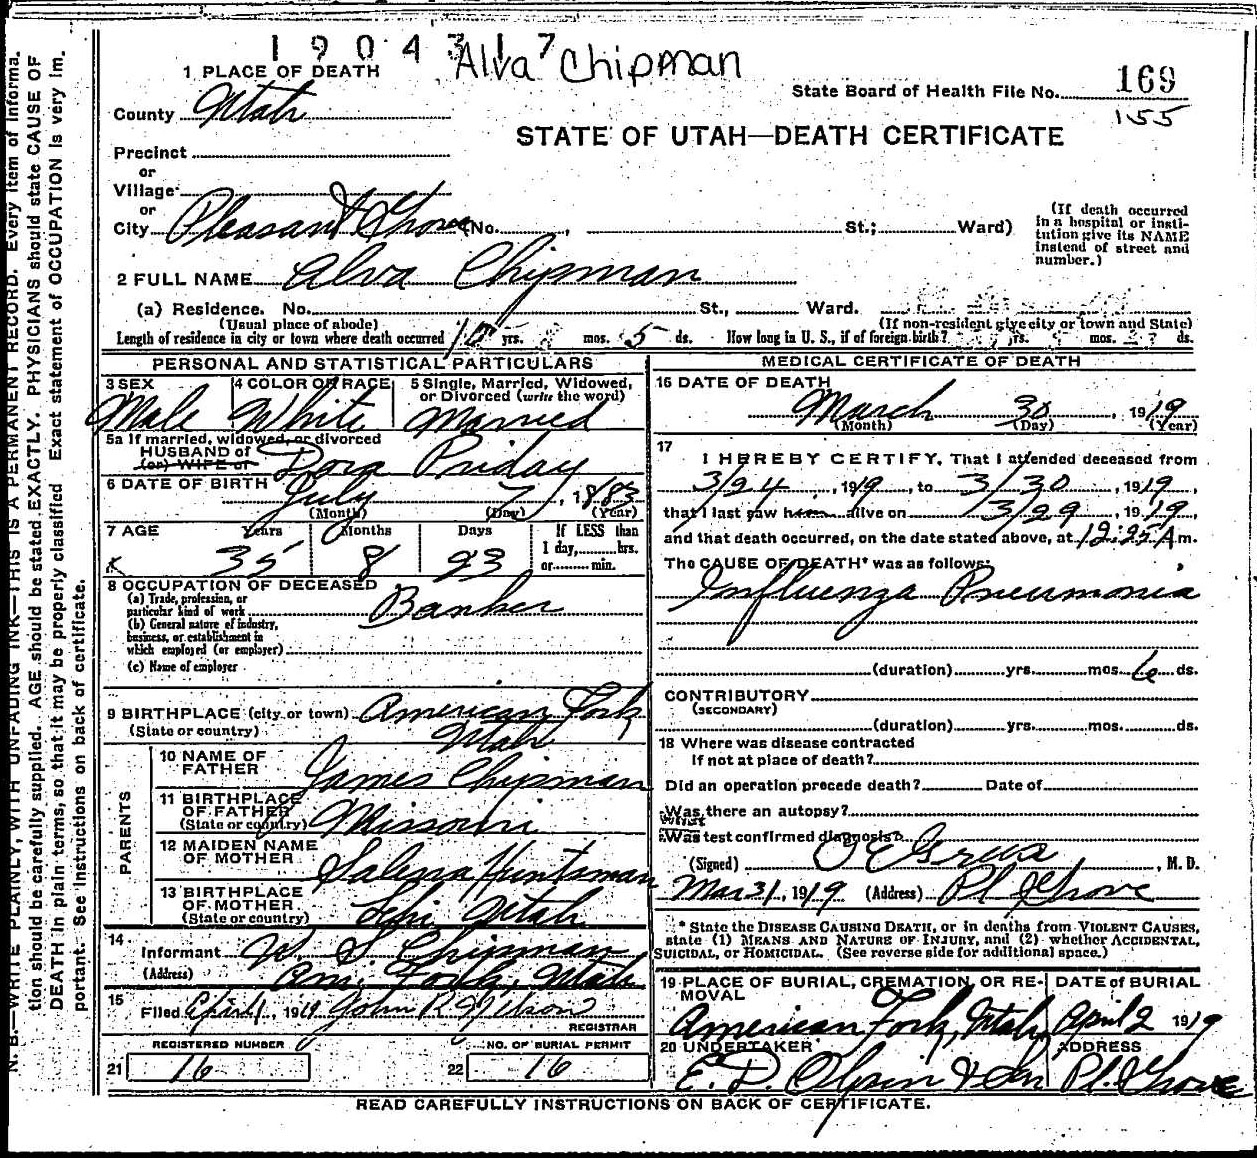 1904317
Alva Chipman
1 PLACE OF DEATH
State Board of Health File No. 169
155
County Utah
STATE OF UTAH—DEATH CERTIFICATE
Precinct
or
Village
or
City Pleasant Grove (No. , St.; Ward)
(If death occurred in a hospital or institution give its NAME instead of street and number.)
2 FULL NAME Alva Chipman
(a) Residence. No. St., Ward.
(Usual place of abode) (If non-resident give city or town and State)
Length of residence in city or town where death occurred 10 yrs. mos. 5 ds. How long in U. S., if of foreign birth? yrs. mos. ds.
PERSONAL AND STATISTICAL PARTICULARS
3 SEX 4 COLOR OR RACE 5 Single, Married, Widowed, or Divorced (write the word)
Male White Married
5a If married, widowed, or divorced
HUSBAND of
(or) WIFE of Dora Priday
6 DATE OF BIRTH July 7, 1883
(Month) (Day) (Year)
7 AGE Years Months Days If LESS than
1 day, hrs.
or min.
35 8 23
8 OCCUPATION OF DECEASED
(a) Trade, profession, or
particular kind of work Banker
(b) General nature of industry,
business, or establishment in
which employed (or employer)
(c) Name of employer
9 BIRTHPLACE (city or town) American Fork
(State or country) Utah
PARENTS
10 NAME OF
FATHER James Chipman
11 BIRTHPLACE
OF FATHER
(State or country) Missouri
12 MAIDEN NAME
OF MOTHER Salena Huntsman
13 BIRTHPLACE
OF MOTHER
(State or country) Lehi Utah
14
Informant W. S. Chipman
(Address) Am. Fork, Utah
15
Filed April 1, 1919 John R Nelson
REGISTRAR
REGISTERED NUMBER NO. OF BURIAL PERMIT
21 16 22 16
MEDICAL CERTIFICATE OF DEATH
16 DATE OF DEATH
March 30, 1919
(Month) (Day) (Year)
17
I HEREBY CERTIFY, That I attended deceased from
3/24, 1919, to 3/30, 1919,
that I last saw him alive on 3/29, 1919,
and that death occurred, on the date stated above, at 12:25 A m.
The CAUSE OF DEATH* was as follows:
Influenza Pneumonia
(duration) yrs. mos. 6 ds.
CONTRIBUTORY
(SECONDARY)
(duration) yrs. mos. ds.
18 Where was disease contracted
If not at place of death?
Did an operation precede death? Date of
Was there an autopsy?
What
Was test confirmed diagnosis?
(Signed) , M. D.
Mar 31, 1919 (Address) Pl Grove
* State the DISEASE CAUSING DEATH, or in deaths from VIOLENT CAUSES,
state (1) MEANS AND NATURE OF INJURY, and (2) whether ACCIDENTAL,
SUICIDAL, or HOMICIDAL. (See reverse side for additional space.)
19 PLACE OF BURIAL, CREMATION, OR RE-
MOVAL DATE OF BURIAL
American Fork, Utah April 2 1919
20 UNDERTAKER ADDRESS
E. D. Olpin & Son Pl. Grove
READ CAREFULLY INSTRUCTIONS ON BACK OF CERTIFICATE.
N. B.—WRITE PLAINLY, WITH UNFADING INK—THIS IS A PERMANENT RECORD. Every item of informa-
tion should be carefully supplied. AGE should be stated EXACTLY. PHYSICIANS should state CAUSE OF
DEATH in plain terms, so that it may be properly classified. Exact statement of OCCUPATION is very im-
portant. See instructions on back of certificate.